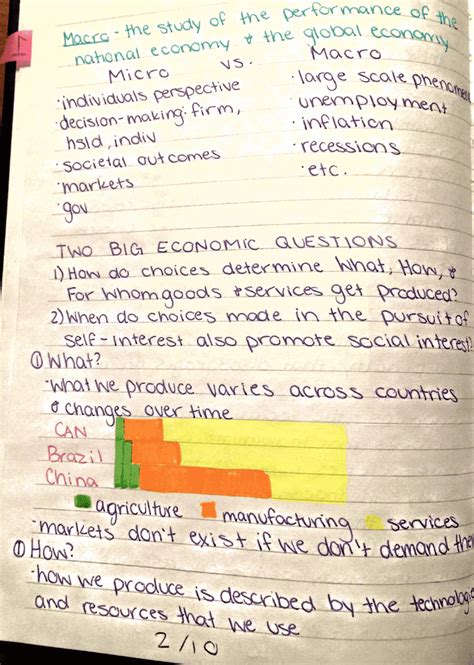 1
Macro - the study of the performance of the
national economy & the global economy
Micro vs. Macro
·individuals perspective
·decision-making: firm,
hsld, indiv
·societal outcomes
·markets
·gov
·large scale phenomen
·unemployment
·inflation
·recessions
·etc.
TWO BIG ECONOMIC QUESTIONS
1) How do choices determine What, How, &
For Whom goods & services get produced?
2) When do choices made in the pursuit of
self-interest also promote social interest?
① What?
·what we produce varies across countries
& changes over time
CAN
Brazil
China
agriculture manufacturing services
·markets don't exist if we don't demand them
① How?
·how we produce is described by the technologie
and resources that we use
2/10